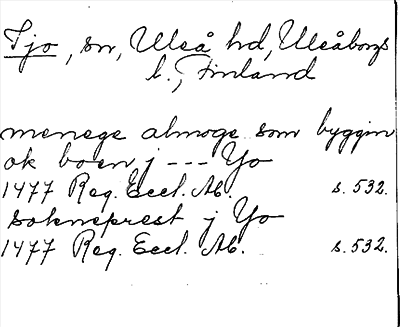 Ijo, sn, Uleå hd, Uleåborgs
l., Finland
menege almoge som byggin
ok boen j --- Yo
1477 Reg. Eccl. Ab. s. 532.
sokneprest j Yo
1477 Reg. Eccl. Ab. s. 532.